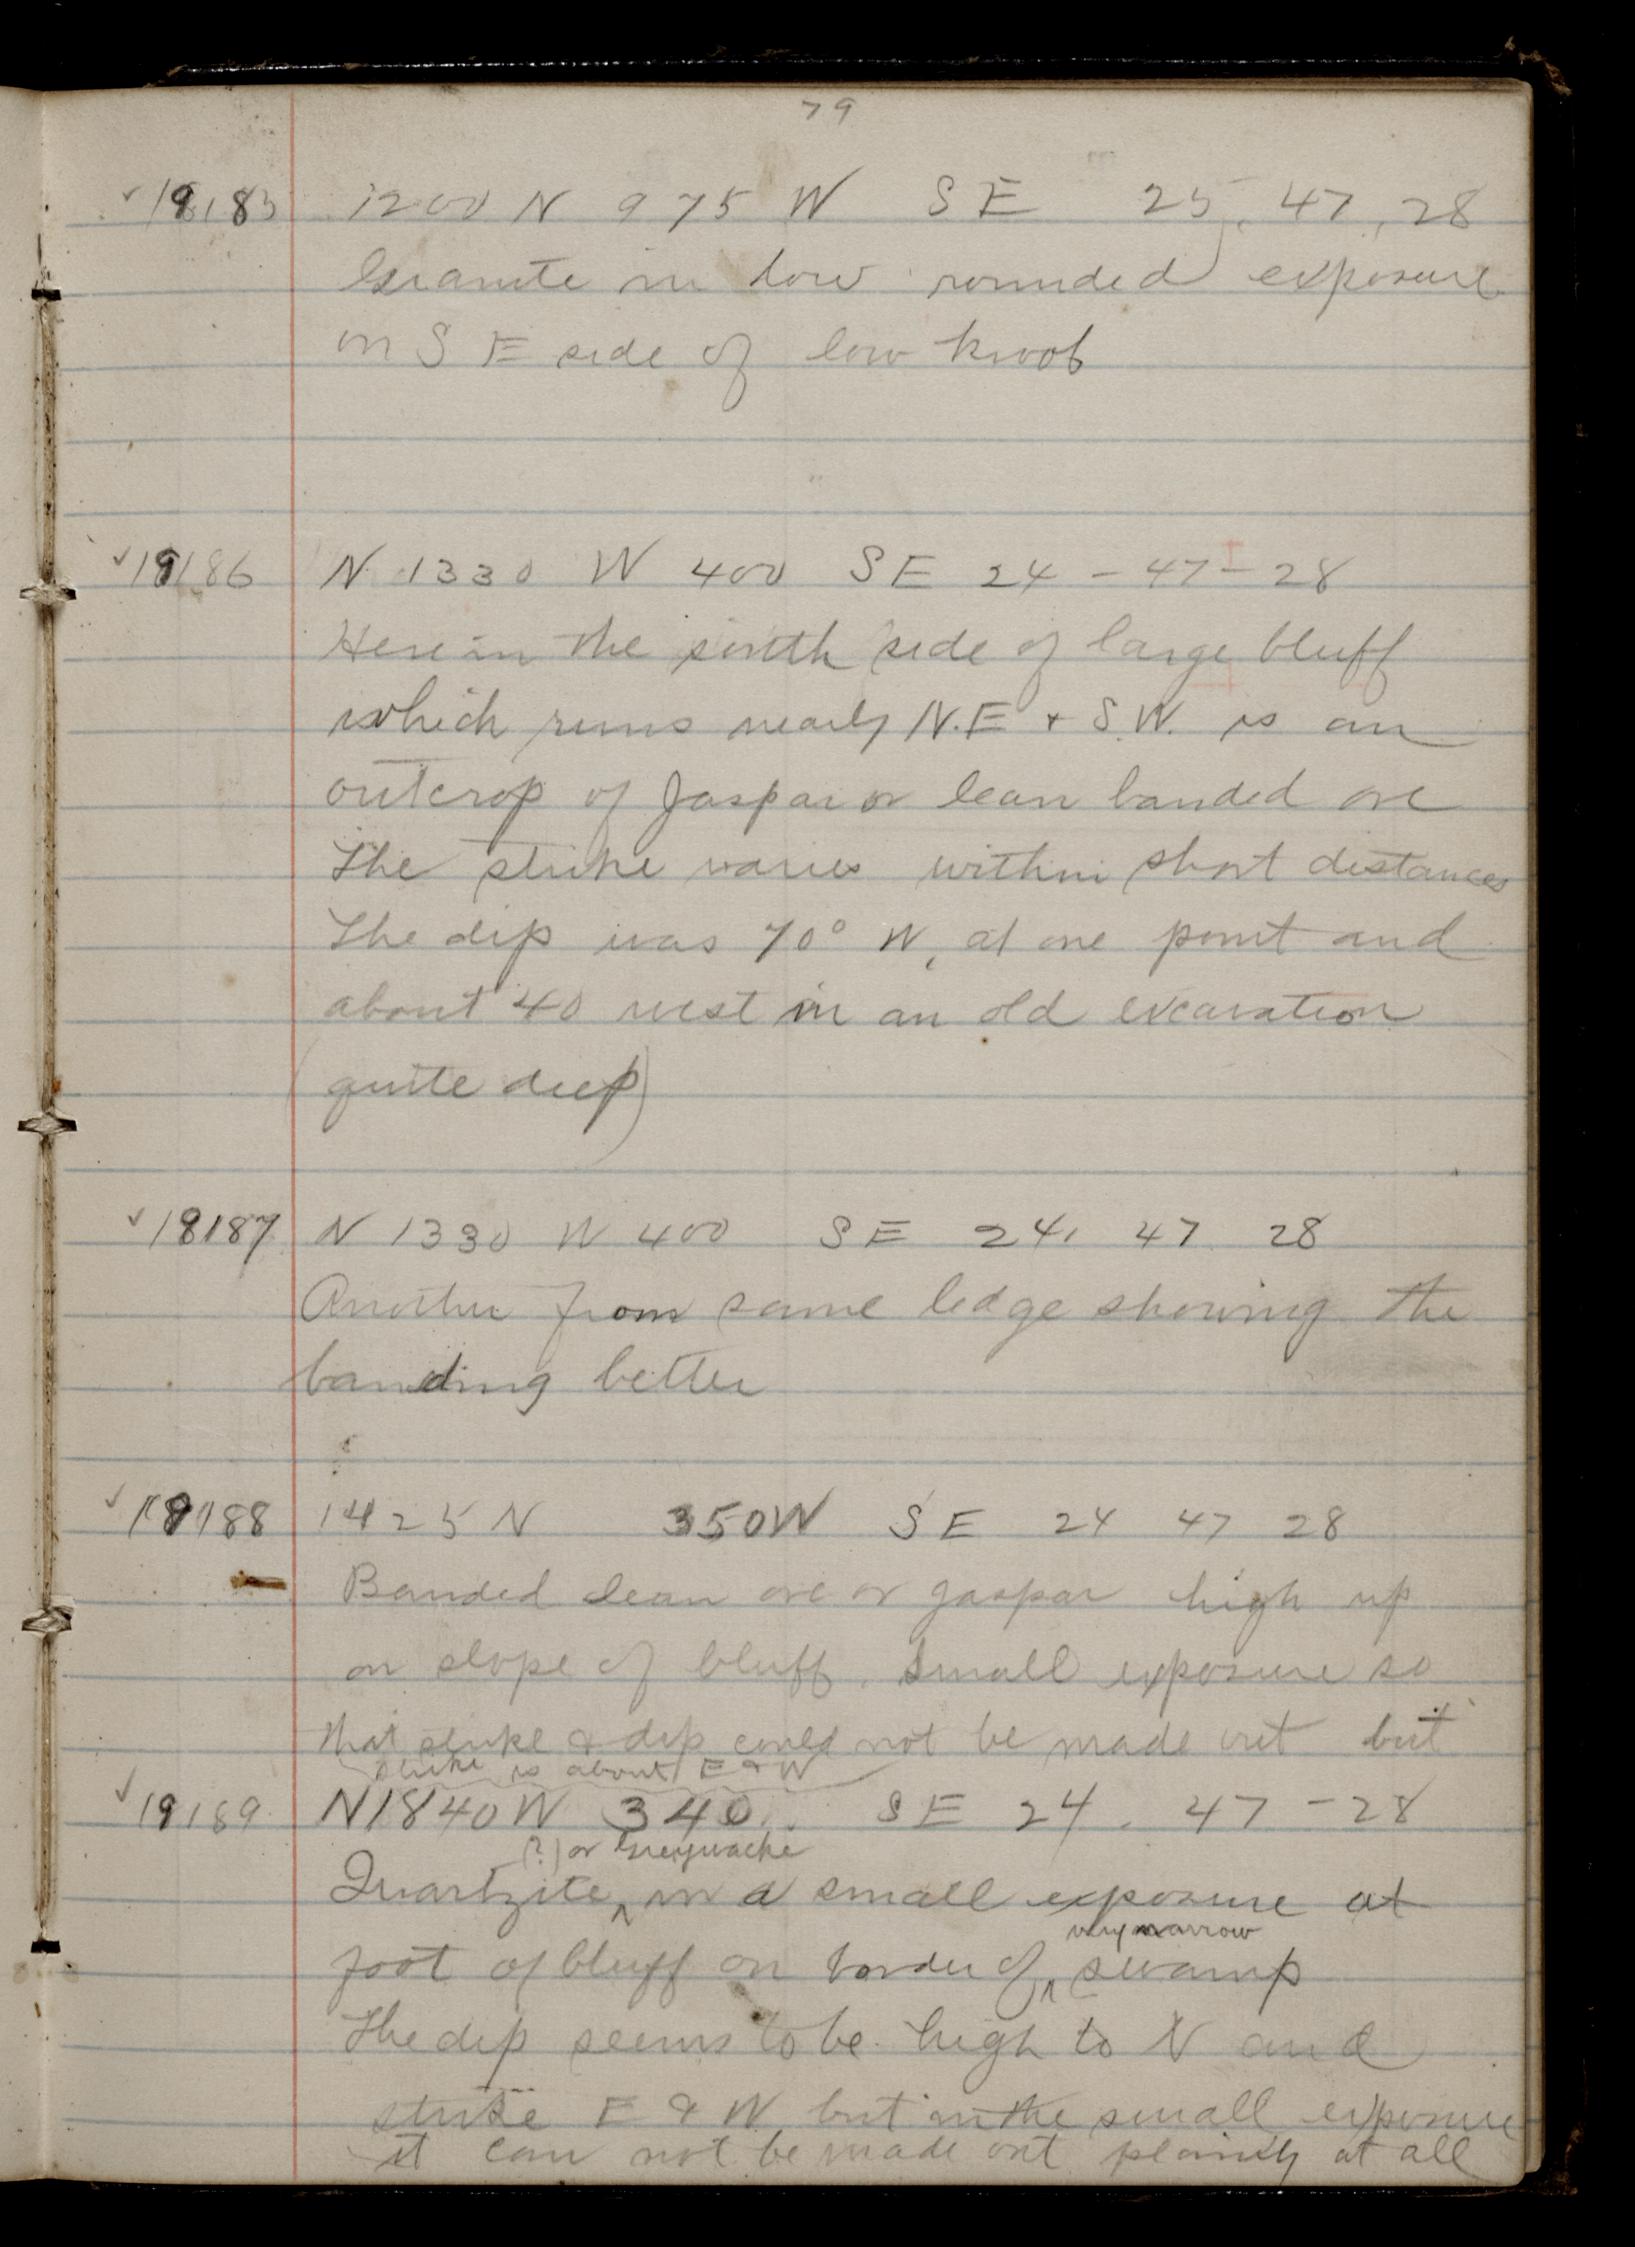 79
✓19183 1200 N 975 W SE 25, 47, 28
Granite in low rounded exposure
on S E side of low knob
✓19186 N 1330 W 400 SE 24 - 47 - 28
Here in the south side of large bluff
which runs nearly N.E + S.W. is an
outcrop of Jaspar or lean banded ore
The strike varies within short distances
The dip was 70° W, at one point and
about 40 west in an old excavation
(quite deep)
✓19187 N 1330 W 400 SE 24, 47 28
Another from same ledge showing the
banding better
✓19188 1425 N 350W SE 24 47 28
Banded lean ore or jaspar high up
on slope of bluff. Small exposure so
that strike & dip could not be made out but
strike is about E & W
✓19189 N1840W 340 SE 24. 47 - 28
(?) or Greywacke
Quartzite ^ in a small exposure at
very narrow
foot of bluff on border of ^ swamp
The dip seems to be high to N and
strike E & W but in the small exposure
it can not be made out plainly at all